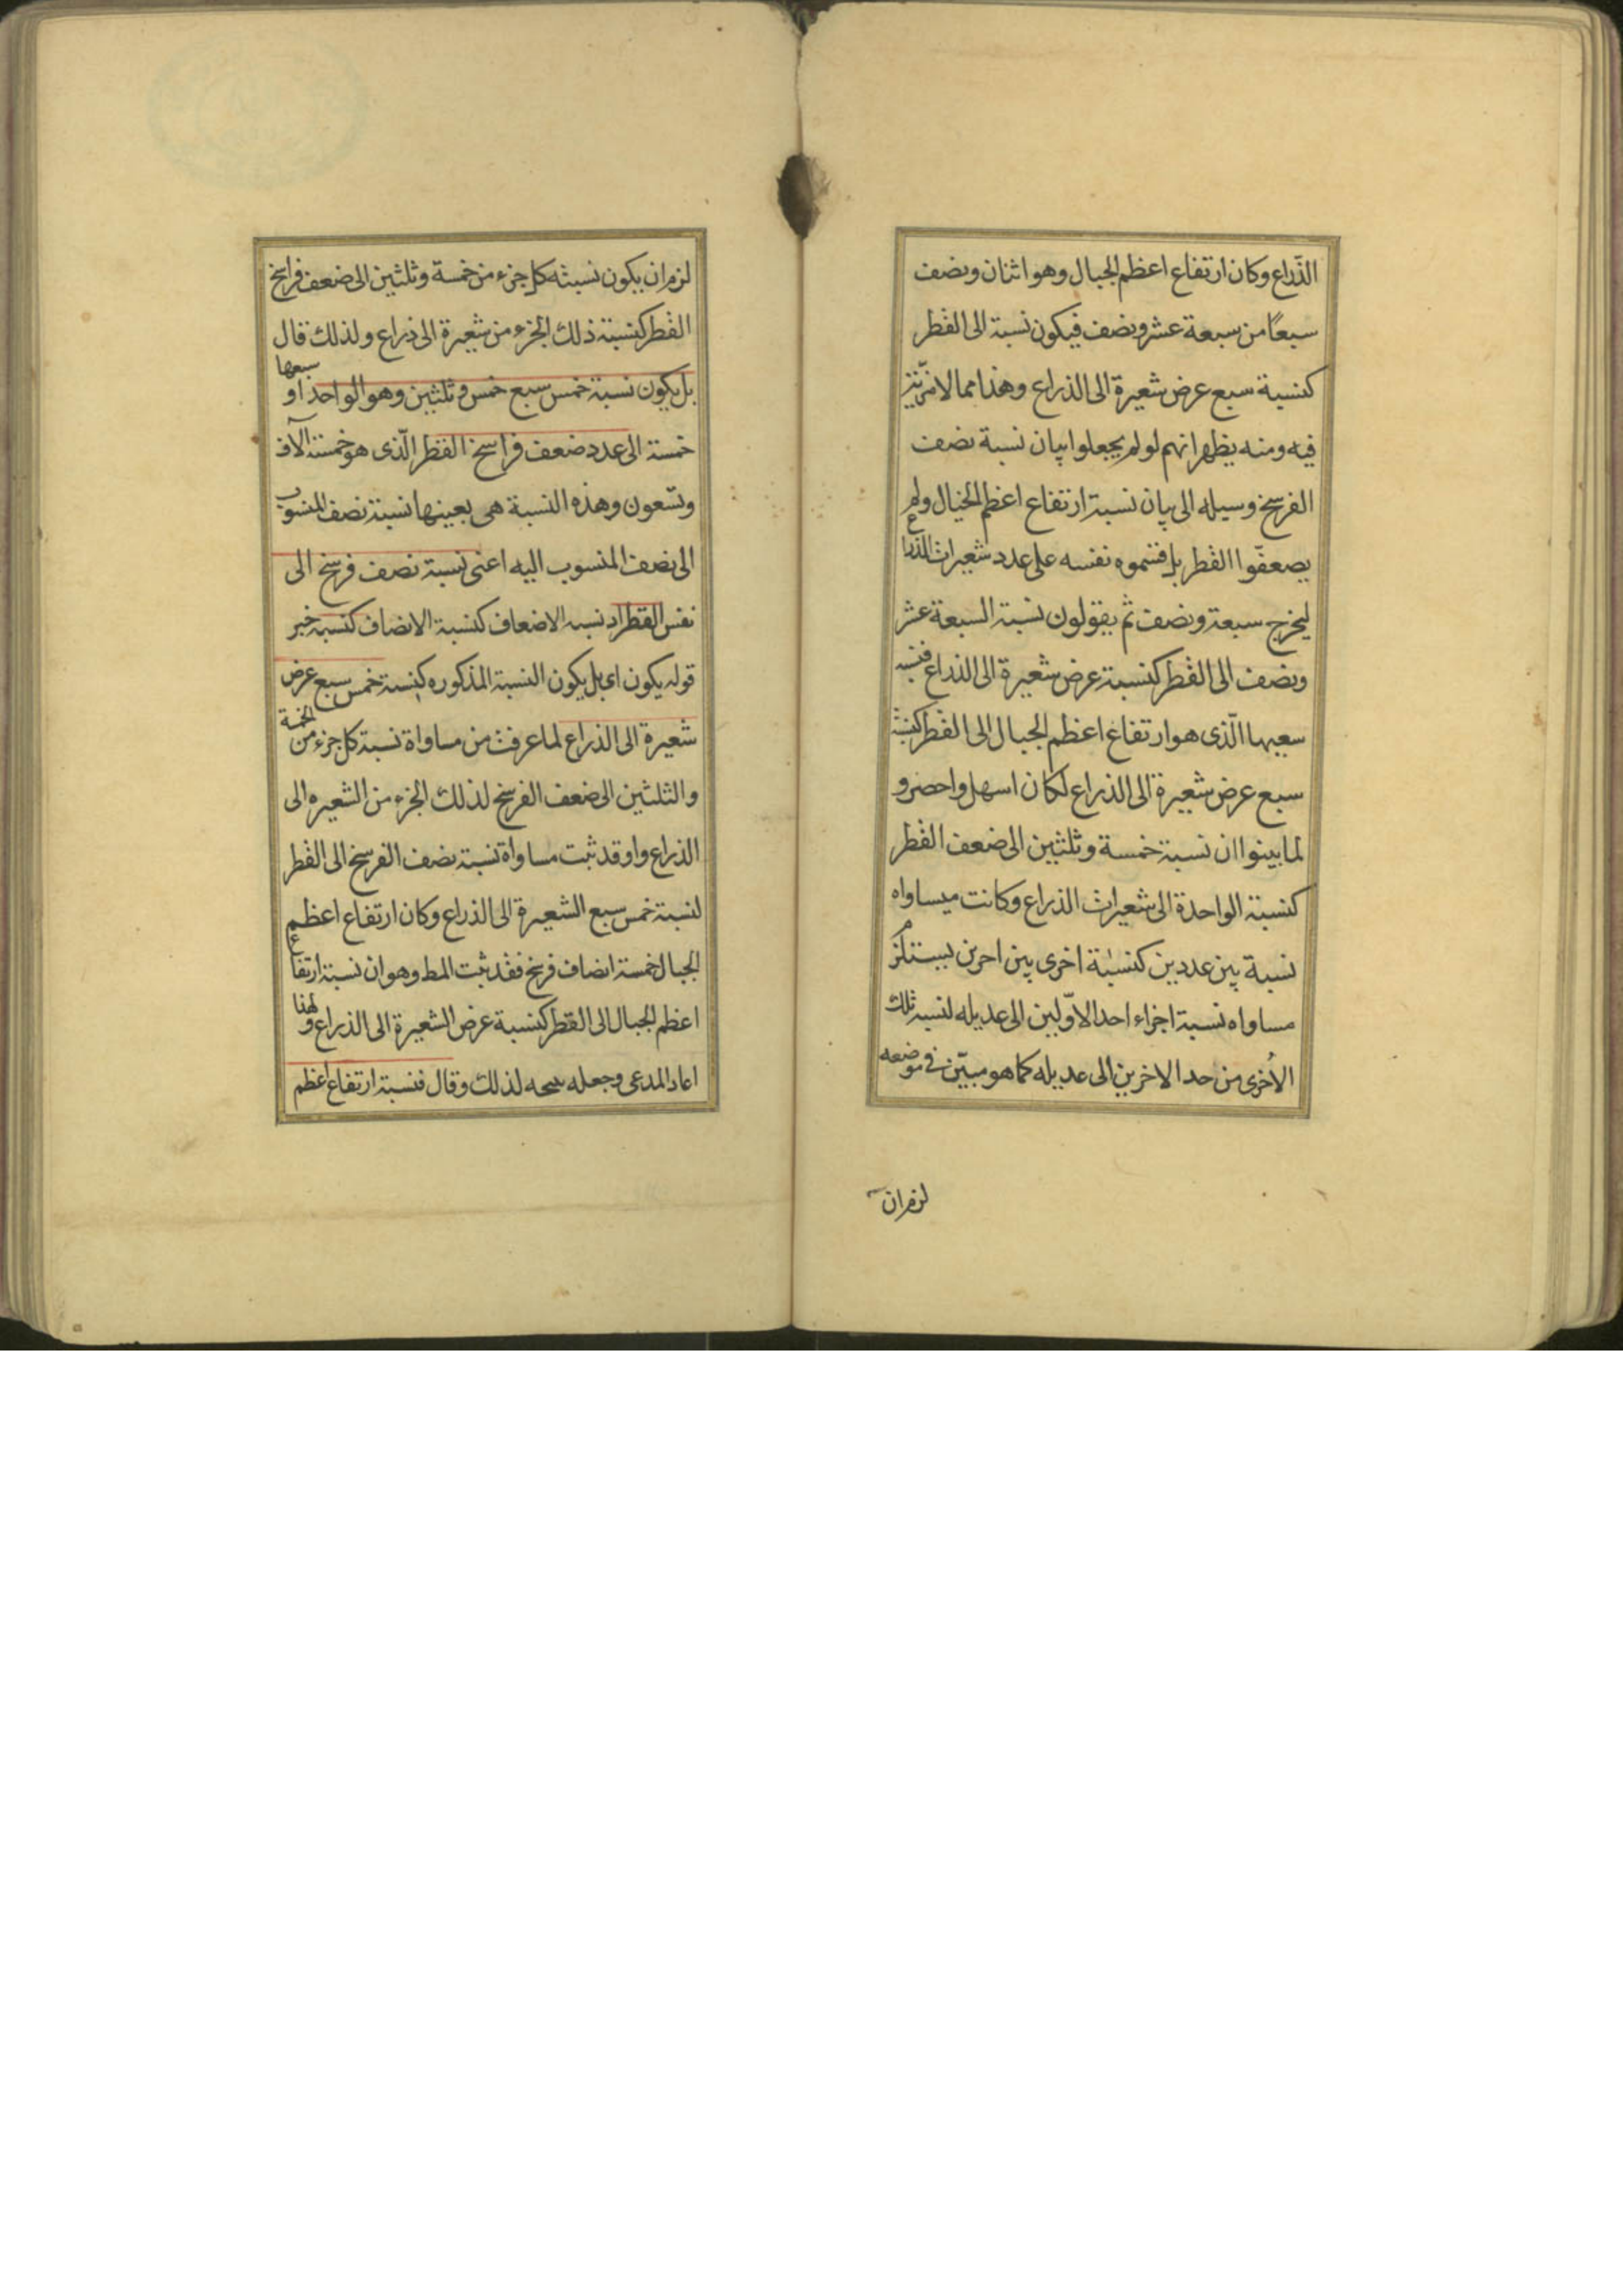 الذّراع وكان ارتفاع اعظم الجبال وهو اثنان ونصف
سبعًا من سبعة عشر ونصف فيكون نسبة الى القطر
كنسبة سبع عرض شعيرة الى الذراع وهذا مما لا
فيه ومنه يظهر انهم لو لم يجعلوا بيان نسبة نصف
الفرسخ وسيله الى بيان نسبة ارتفاع اعظم الجبال ولم
يضعفوا القطر بل قسموه نفسه على عدد شعيرات الذراع
ليخرج سبعة ونصف ثم يقولون نسبة السبعة عشر
ونصف الى القطر كنسبة عرض شعيرة الى الذراع فنسبة
سبعها الّذى هو ارتفاع اعظم الجبال الى القطر كنسبة
سبع عرض شعيرة الى الذراع لكان اسهل واخصر و
لما بينوا ان نسبة خمسة وثلثين الى ضعف القطر
كنسبة الواحدة الى شعيرات الذراع وكانت مساواه
نسبة بين عددين كنسبة اخرى بين اخرين يستلزم
مساواه نسبة اجزاء احد الاوّلين الى عديله لنسبة تلك
الأخرى من حد الاخرين الى عديله كما هو مبيّن فى موضعه
لزم ان
لزم ان يكون نسبته كل جزء من خمسة وثلثين الى ضعف فراسخ
القطر كنسبته ذلك الجزء من شعيرة الى ذراع ولذلك قال
بل يكون نسبة خمس سبع خمس وثلثين وهو الواحد او سبعها
خمسة الى عدد ضعف فراسخ القطر الّذى هو خمسة آلاف
وتسعون وهذه النسبة هى بعينها نسبة نصف المنسوب
الى نصف المنسوب اليه اعنى نسبة نصف فرسخ الى
نفس القطر اد نسبه الاضعاف كنسبة الانصاف كنسبه خبر
قوله يكون اى بل يكون النسبة المذكوره كنسبة خمس سبع عرض
شعيرة الى الذراع لما عرفت من مساواة نسبة كل جزء من الخمسة
والثلثين الى ضعف الفرسخ لذلك الجزء من الشعيره الى
الذراع واو قد ثبت مساواة نسبة نصف الفرسخ الى القطر
لنسبة خمس سبع الشعيرة الى الذراع وكان ارتفاع اعظم
الجبال خمسة انصاف فرسخ فقد ثبت المط وهو ان نسبة ارتفاع
اعظم الجبال الى القطر كنسبة عرض الشعيرة الى الذراع ولهذا
اعاد المدعى وجعله لذلك وقال فنسبة ارتفاع اعظم